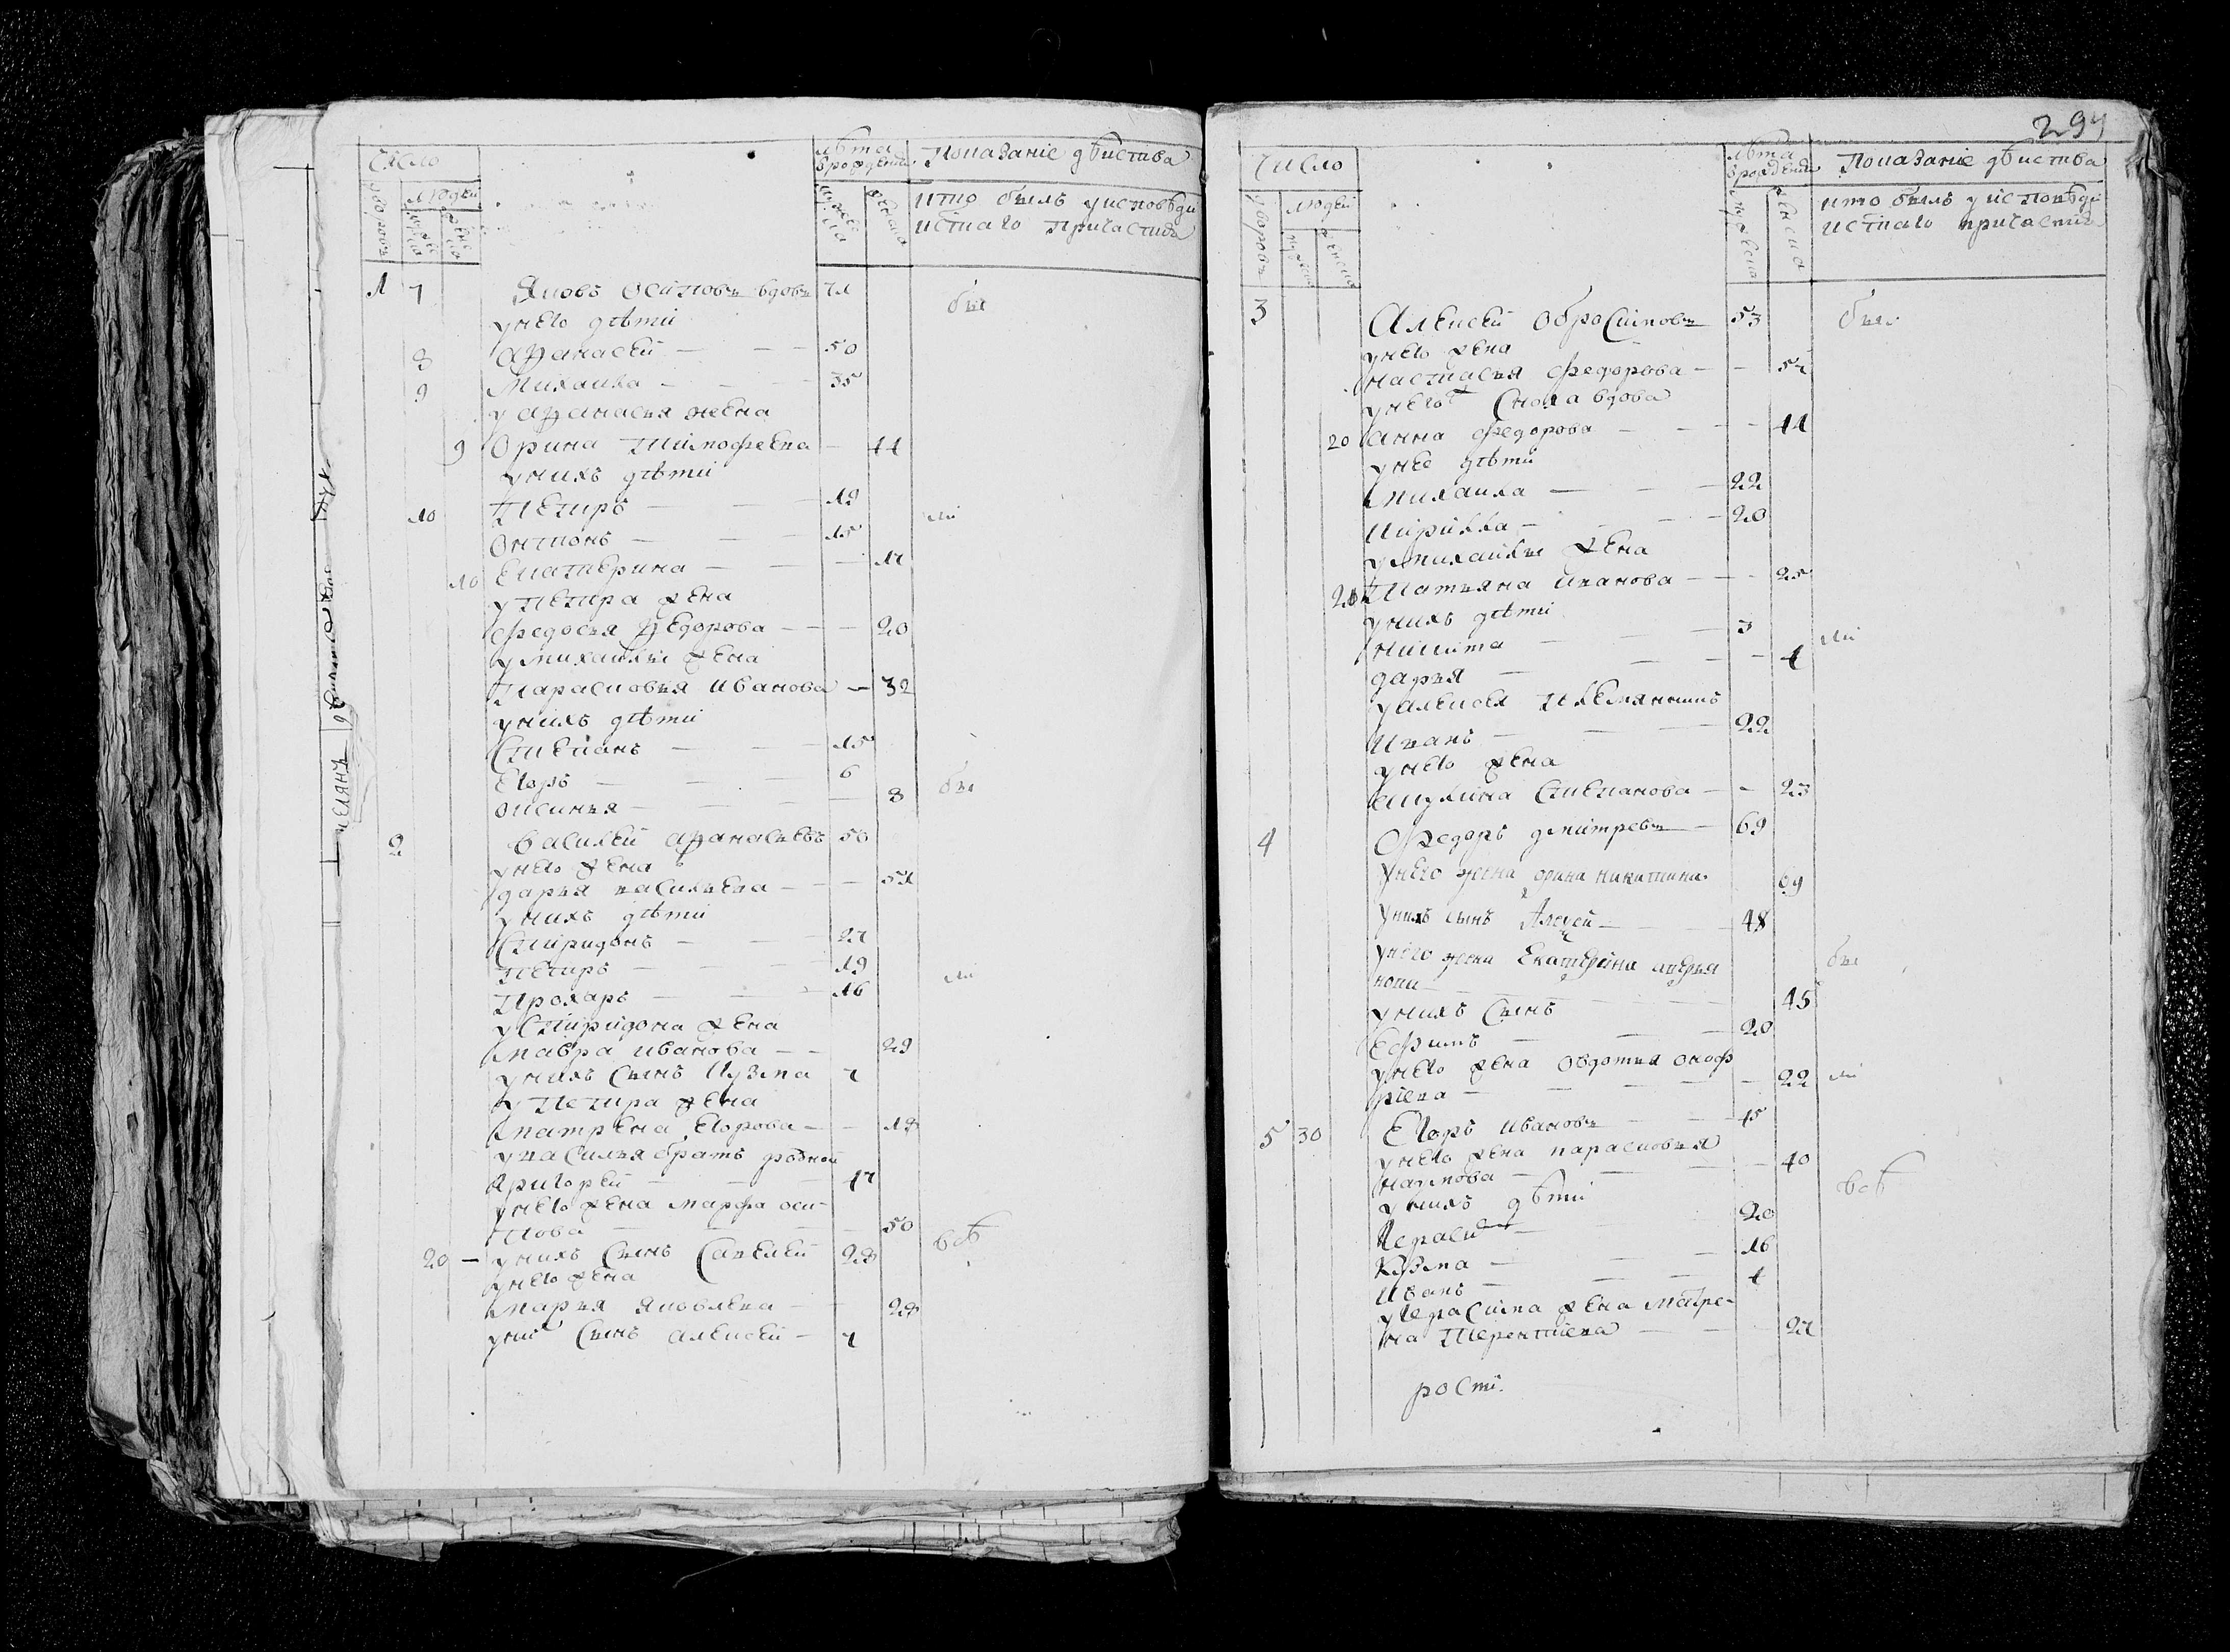 Число
людей
лѣта
ѿ рожденiя
Показанiе дѣиства
кто былъ уисповѣди
истаго Причастия
1 7 Яковъ осиповъ вдовъ 71
был
унего дѣти
8 афанасеи — 50
9 Михаила — 35
у афанасья жена
9 Орина Тимофеева — 44
унихъ дѣти
10 Петръ — 19
ли
Онтонъ — 15
10 Екатерина — 17
упетра жена
федосья федорова — 20
умихаилы жена
Парасковья иванова — 32
унихъ дѣти
Степанъ — 15
Егоръ — 6
оксинья — 8
бы
2 василеи афанасьевъ 50
унего жена
дарья васильева — 51
унихъ дѣти
Спиридонъ — 27
Петръ — 19
ли
Прохаръ — 16
успиридона жена
мавра иванова — 29
унихъ сынъ Кузма 7
у Петра жена
матрена Егорова — 18
увасилья братъ родной
григореи — 47
унего жена марфа оси-
пова — 50
всѣ
20 — унихъ сынъ Савелеи 28
унего жена
марья яковлева — 28
унихъ сынъ алексеи — 7
294
Число
людей
лѣта
ѿ рожденiя
Показанiе дѣиства
кто былъ уисповѣди
истаго причастия
3 Алексеи обросимовъ 53
был
унего жена
настасья федорова — 57
унего сноха вдова
20 анна федорова — 44
унее дѣти
михаила — 22
Кирилла — 20
умихаилы жена
Татьяна иванова — 25
унихъ дѣти
никита — 3
ли
дарья — 4
уалексея племянникъ
Иванъ — 22
унего жена
акулина Степанова — 23
4 Федоръ дмитревъ — 69
Унего жена орина никитина 69
Унихъ сынъ Алексей — 48
унего жена Екатерина аверья
нова — 45
бы
унихъ сынъ
Ефимъ — 20
унего жена овдотья оноф
рiева — 22
ли
5 30 Егоръ ивановъ — 45
унего жена парасковья
наумова — 40
унихъ дѣти
всѣ
Герасимъ — 20
Кузма — 16
Иванъ — 4
угерасима жена матре-
на Терентiева — 27
рости.